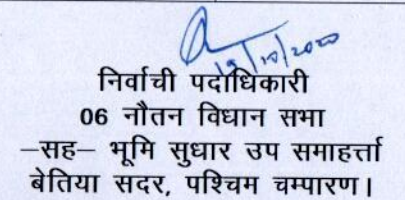 19/10/2020
निर्वाची पदाधिकारी
06 नौतन विधान सभा
–सह– भूमि सुधार उप समाहर्त्ता
बेतिया सदर, पश्चिम चम्पारण।